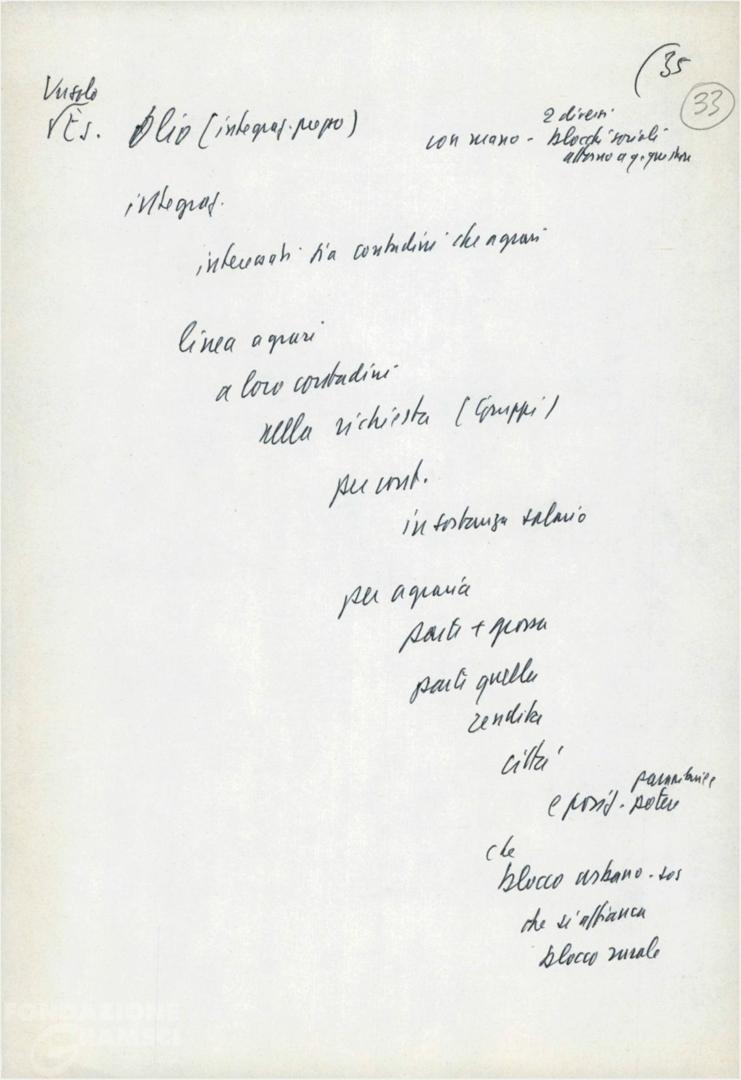 (35
33
Es. Olio (integraz. prezzo)
con mano - 2 diversi
blocchi sociali
attorno a q. questione
integraz.
interessati sia contadini che agrari
linea agrari
a loro contadini
nella richiesta (Gruppi)
per cont.
in sostanza salario
per agraria
parte + grossa
parte quella
rendita
città
e posiz. potere
parassitarie
che
blocco urbano - sos
che si affianca
blocco rurale
FONDAZIONE
GRAMSCI